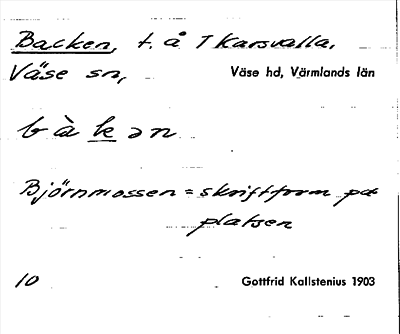 Backen, t. å Tkarsvalla,
Väse sn, Väse hd, Värmlands län
b à k ə n
Björnmossen = skriftform på
platsen
10 Gottfrid Kallstenius 1903